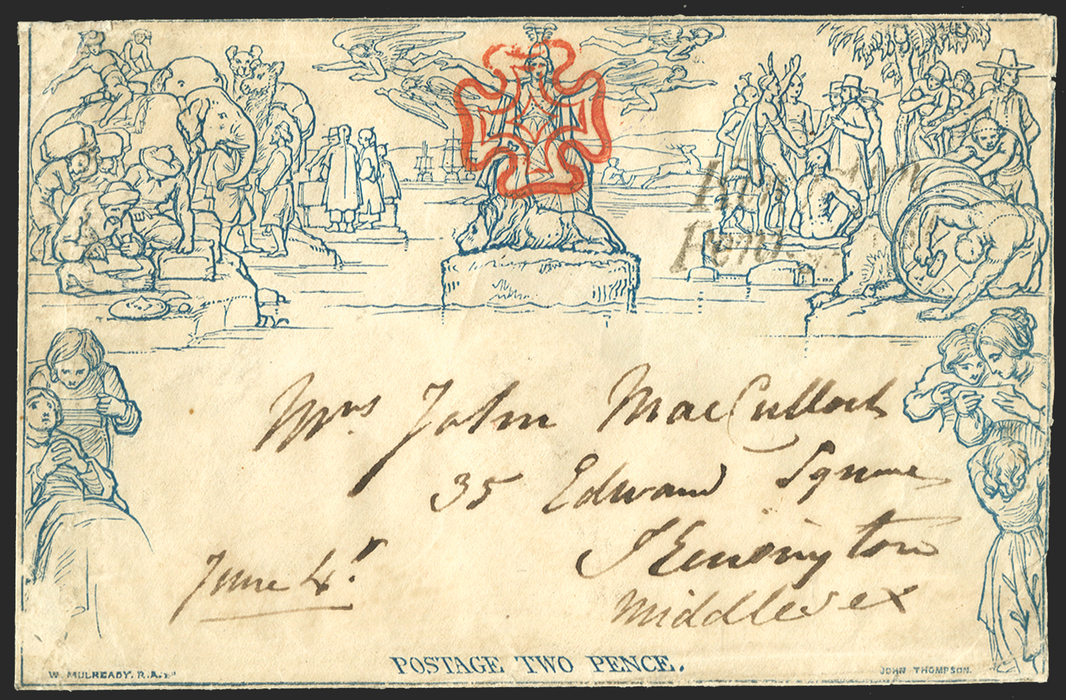 Penny
Mrs John MacCulloch
35 Edward Square
Kensington
Middlesex
June 4t
POSTAGE TWO PENCE.
W. MULREADY, R.A.
JOHN THOMPSON.